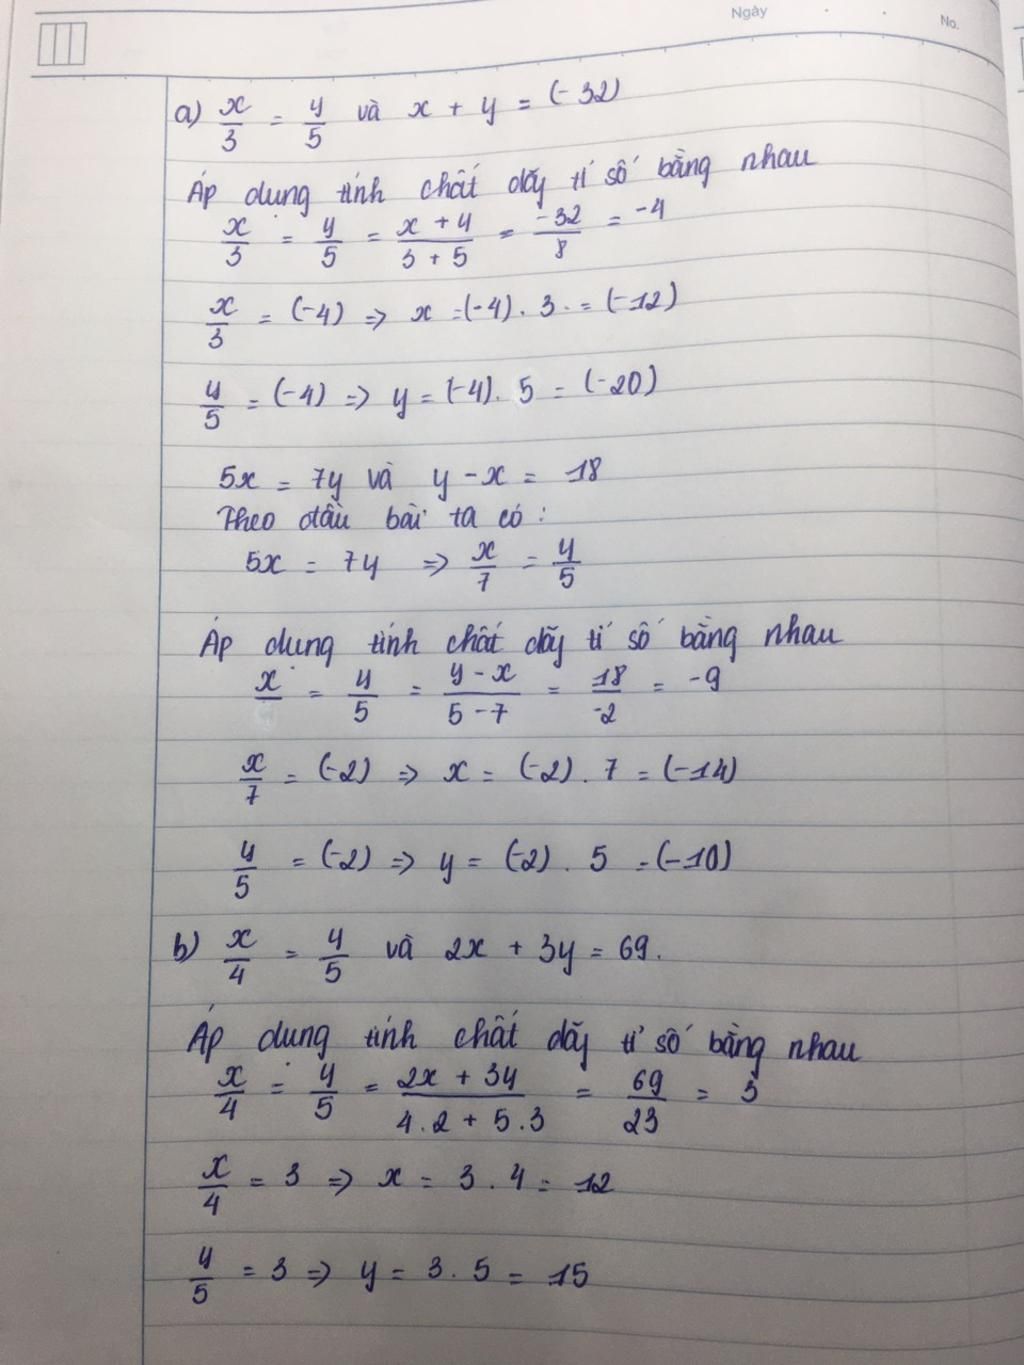 Ngày
No.
a) x/3 = y/5 và x + y = (-32)
Áp dung tính chất dãy tỉ số bằng nhau
x/3 = y/5 = (x + y)/(3 + 5) = -32/8 = -4
x/3 = (-4) => x = (-4) . 3 = (-12)
y/5 = (-4) => y = (-4) . 5 = (-20)
5x = 7y và y - x = 18
Theo đầu bài ta có :
5x = 7y => x/7 = y/5
Áp dung tính chất dãy tỉ số bằng nhau
x/ = y/5 = (y - x)/(5 - 7) = 18/-2 = -9
x/7 = (-2) => x = (-2) . 7 = (-14)
y/5 = (-2) => y = (-2) . 5 = (-10)
b) x/4 = y/5 và 2x + 3y = 69.
Áp dung tính chất dãy tỉ số bằng nhau
x/4 = y/5 = (2x + 3y)/(4.2 + 5.3) = 69/23 = 3
x/4 = 3 => x = 3 . 4 = 12
y/5 = 3 => y = 3 . 5 = 15